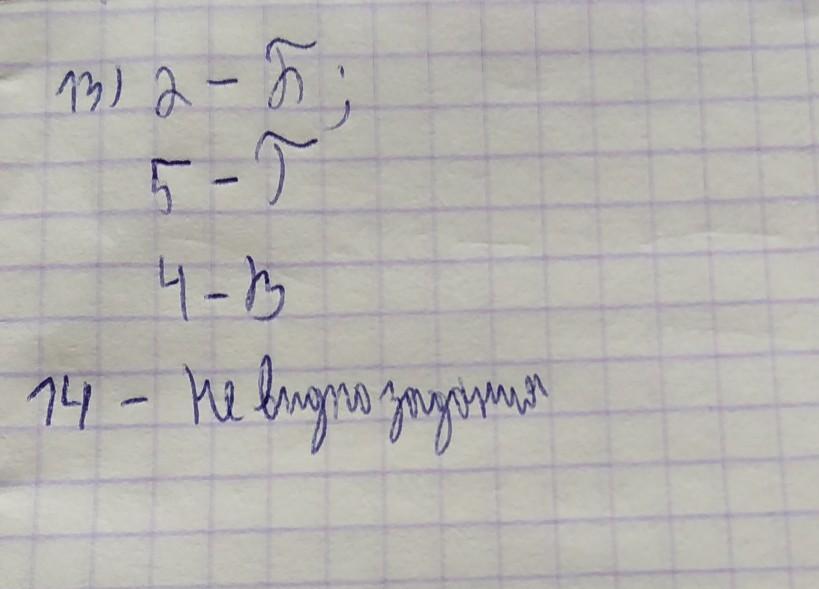 13) 2 - Б;
5 - Г
4 - В
14 - Не видно задания